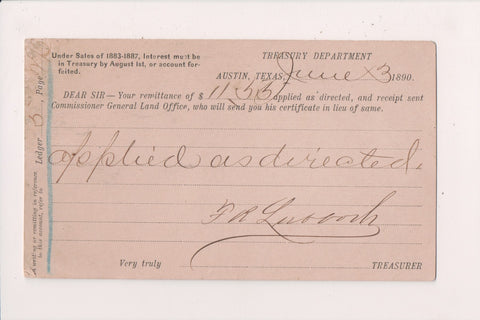 Under Sales of 1883-1887, Interest must be
in Treasury by August 1st, or account for-
feited.
TREASURY DEPARTMENT
AUSTIN, TEXAS, June 3 1890.
DEAR SIR—Your remittance of $ 11.55 applied as directed, and receipt sent
Commissioner General Land Office, who will send you his certificate in lieu of same.
applied as directed.
F R Lubbock
Very truly
TREASURER
Ledger
, Page
in writing or remitting in reference
to this account, refer to